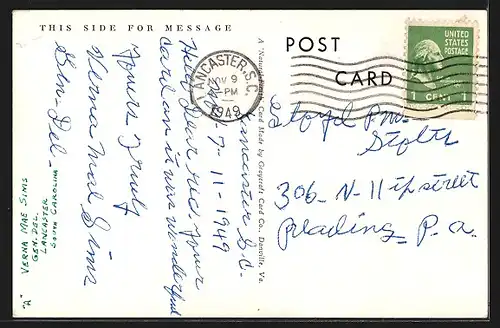 THIS SIDE FOR MESSAGE
Lancaster S.C.
11-7-1949
Hello Dear rec. your
card an it was wonderful
Yours Truly
Verna Mae Sims
Gen-Del-
VERNA MAE SIMS
GEN. DEL.
LANCASTER
SOUTH CAROLINA
"A"
A "Natural-Finish" Card Made by Graycraft Card Co., Danville, Va.
LANCASTER, S.C.
NOV 9
PM
1949
POST
CARD
UNITED
STATES
POSTAGE
1 CENT 1
Stoltz
306-N-11th street
Reading-P.a.